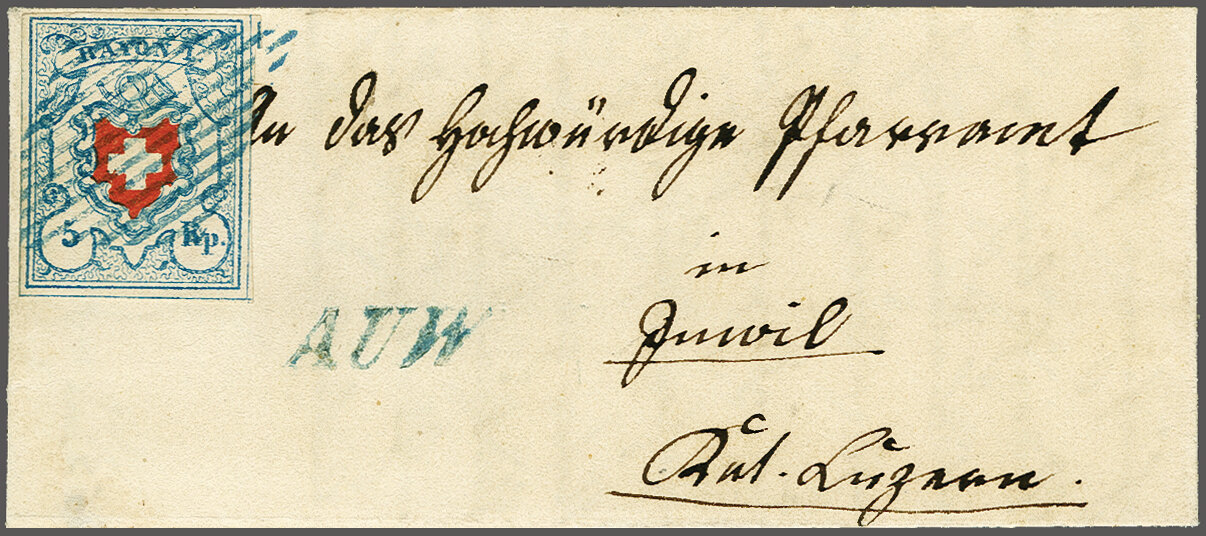 RAYON I.
5 Rp.
An das Hochwürdige Pfarramt
in
Inwil
AUW
Knt. Luzern.